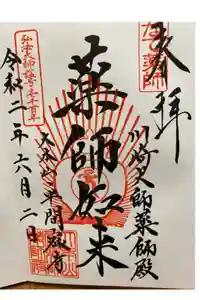 奉拝
川崎大師薬師殿
薬師如来
大本山平間寺
令和二年六月二日
弘法大師